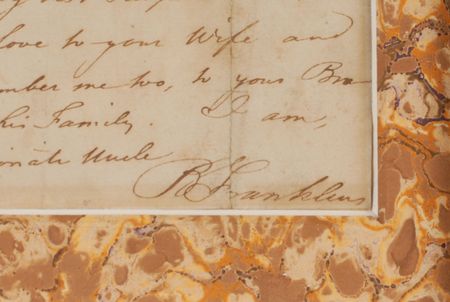 love to your Wife and
mber me too, to your Bro
his Family. I am,
onate Uncle
B Franklin